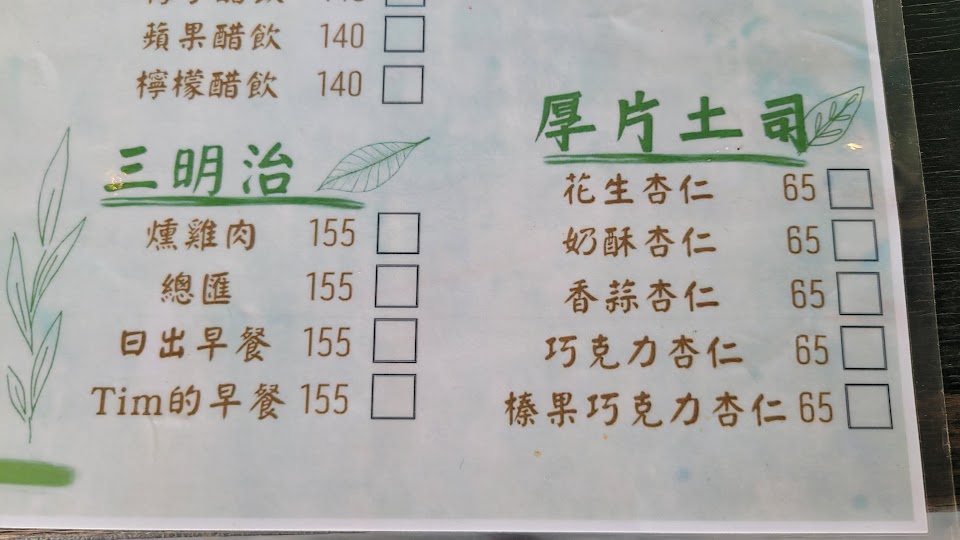 蘋果醋飲 140
檸檬醋飲 140
三明治
燻雞肉 155
總匯 155
日出早餐 155
Tim的早餐 155
厚片土司
花生杏仁 65
奶酥杏仁 65
香蒜杏仁 65
巧克力杏仁 65
榛果巧克力杏仁 65